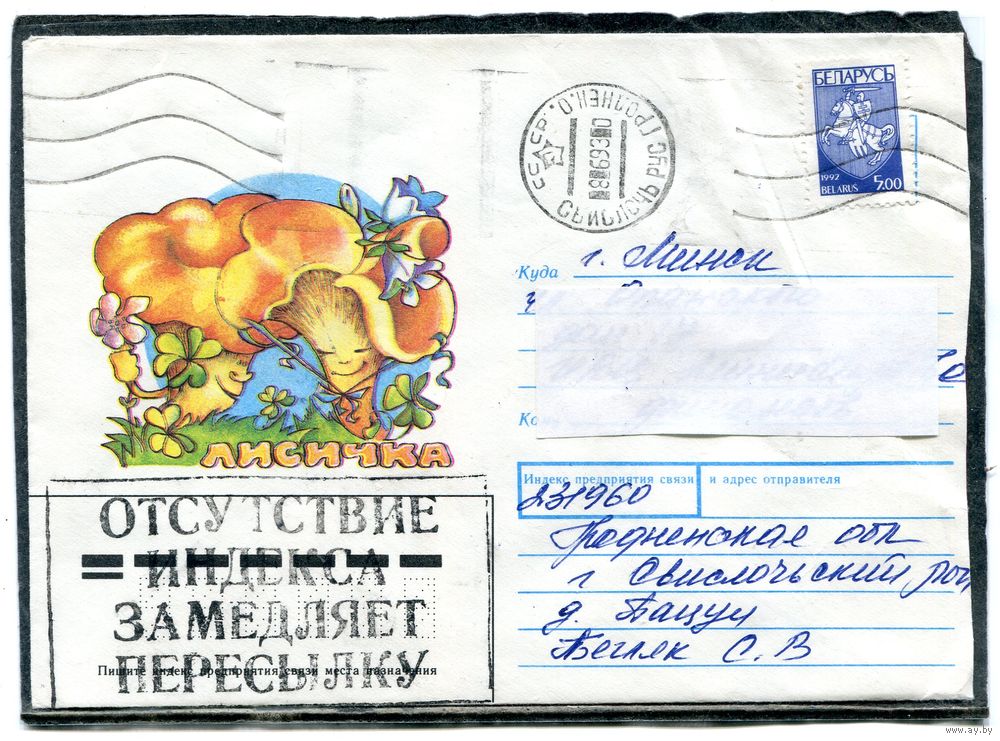 БЕЛАРУСЬ
1992
BELARUS
5.00
СВИСЛОЧЬ РУС ГРОДНЕН.О.
Куда
г. Минск
ЛИСИЧКА
Индекс предприятия связи и адрес отправителя
231960
Гродненская обл
г Свислочьский рон
д. Бацуи
Бегляк С. В
ОТСУТСТВИЕ
ИНДЕКСА
ЗАМЕДЛЯЕТ
ПЕРЕСЫЛКУ
Пишите индекс предприятия связи места назначения
www.ay.by